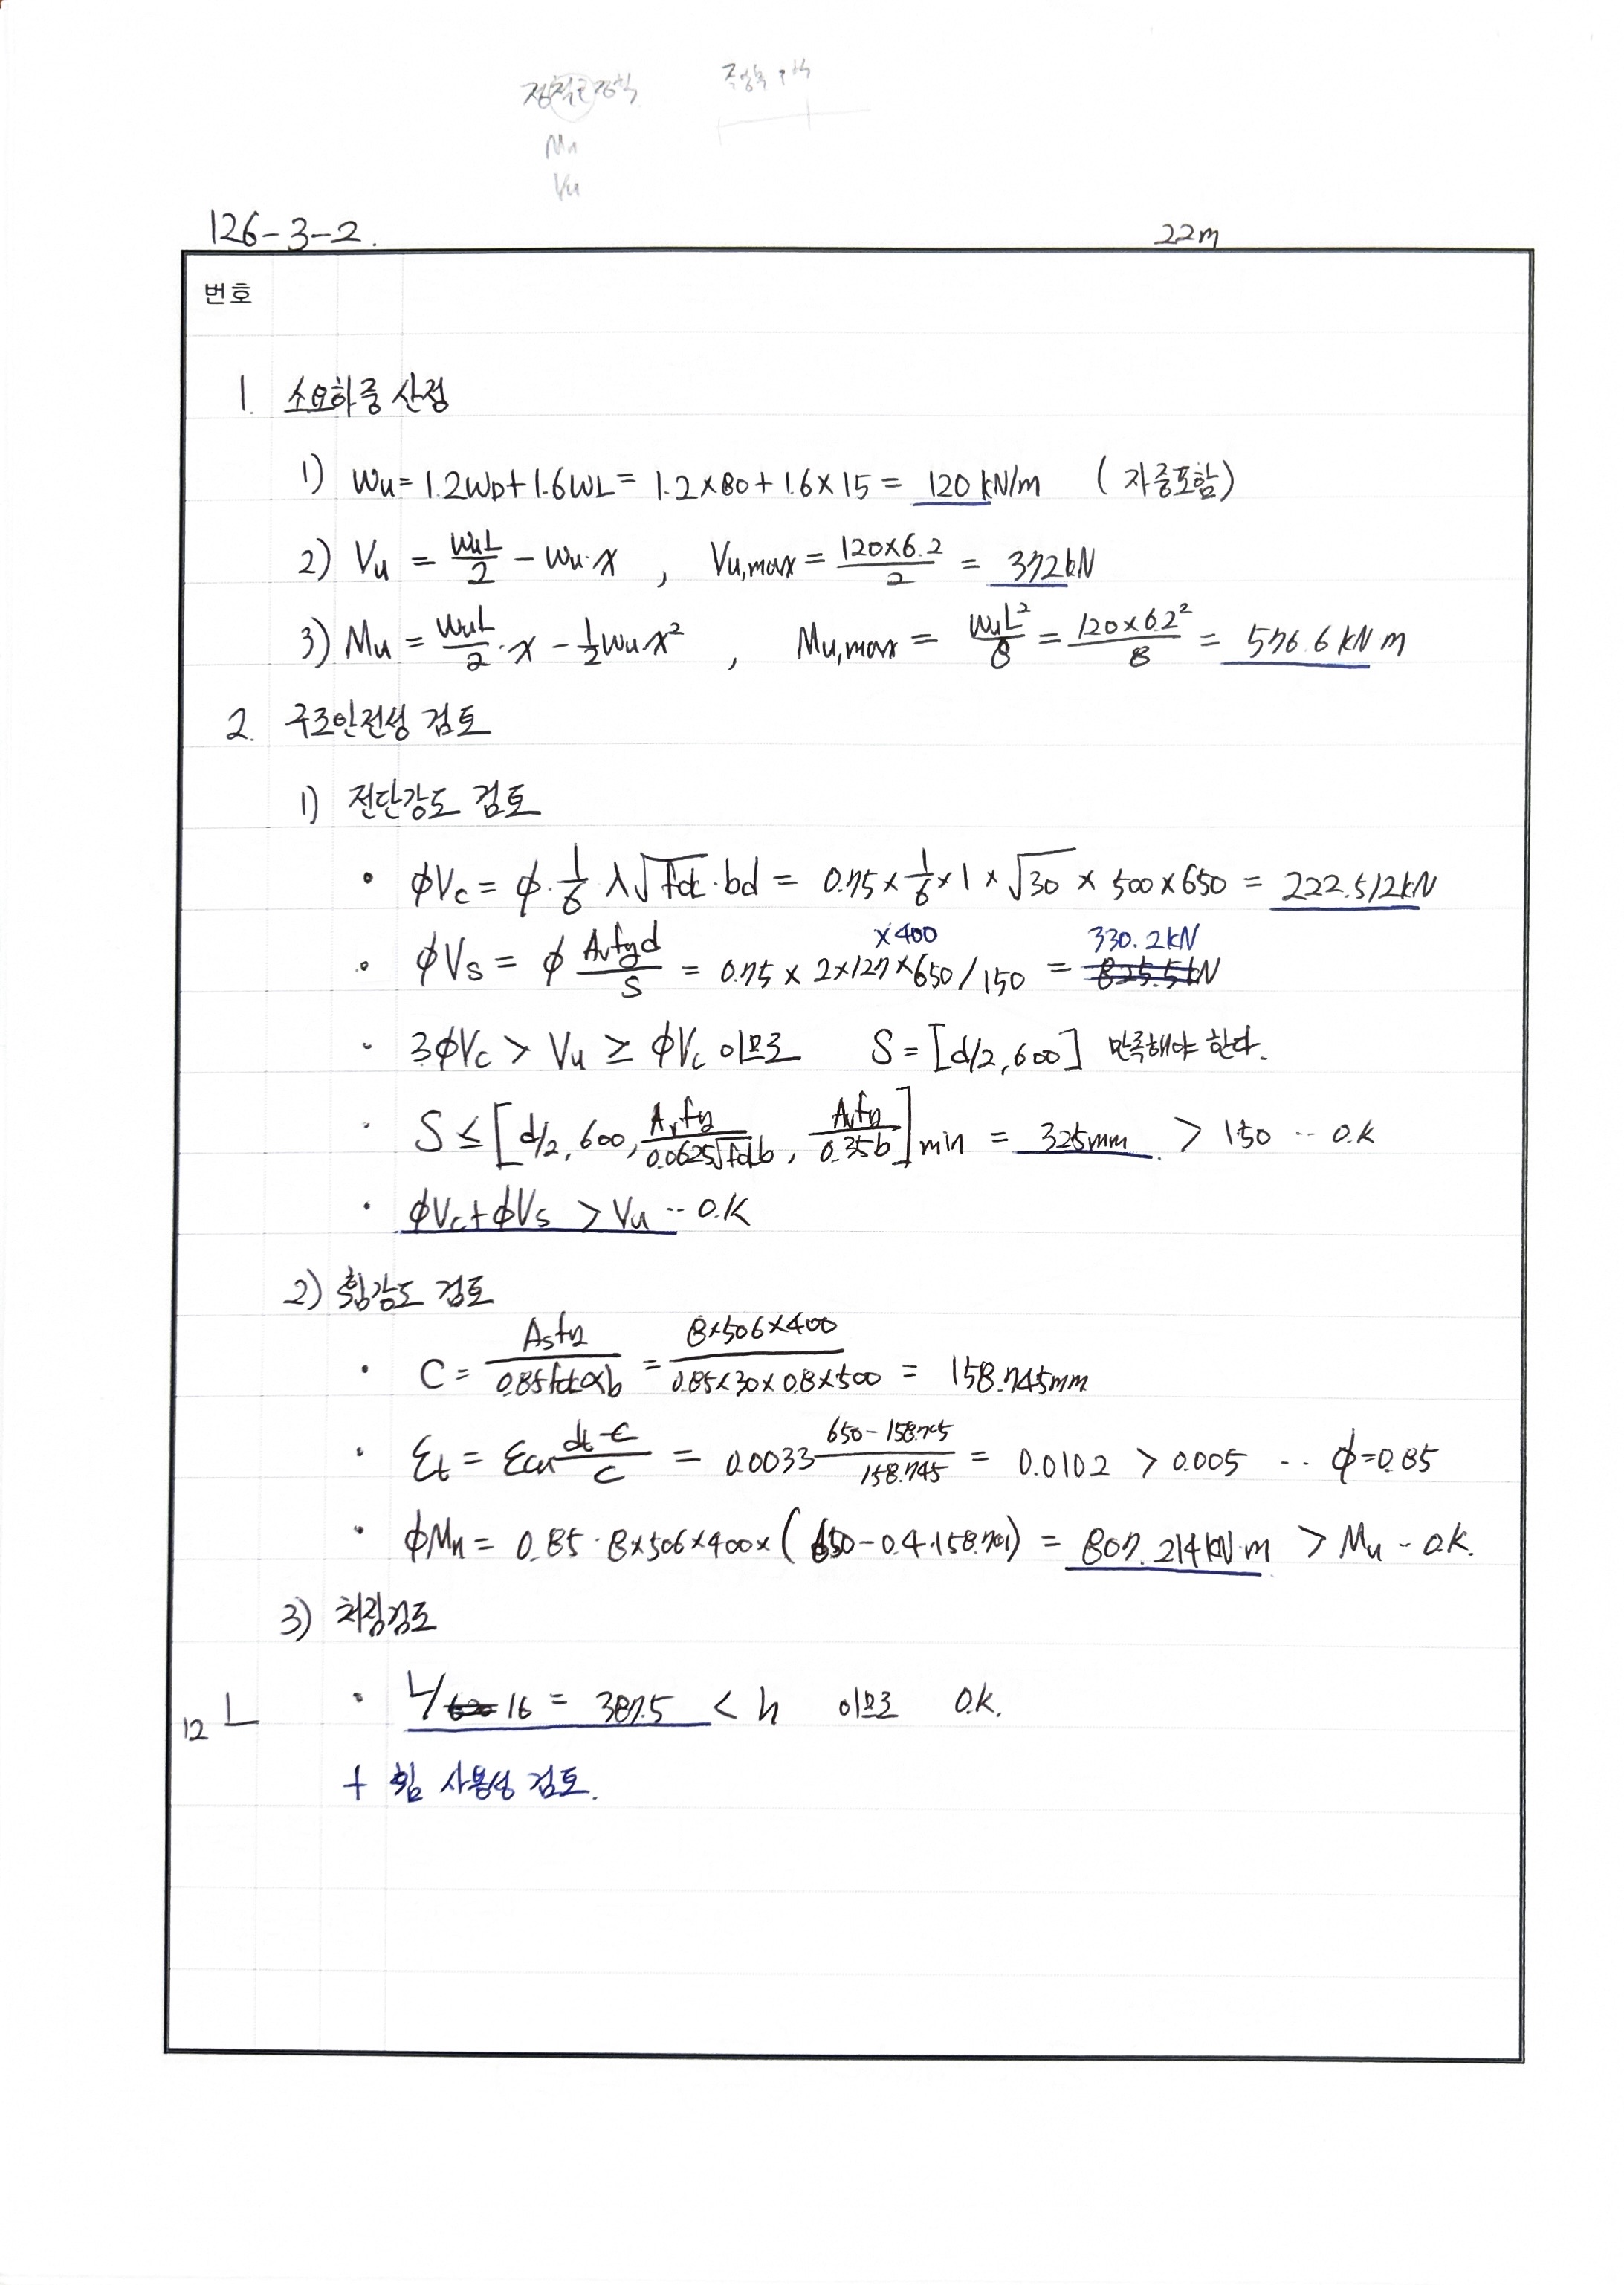 Mu
Vu
126-3-2.
22m
번호
1. 소요하중 산정
1) Wu = 1.2WD + 1.6WL = 1.2×80 + 1.6×15 = 120 kN/m (자중포함)
2) Vu = WuL/2 - Wu·x , Vu,max = 120×6.2/2 = 372kN
3) Mu = WuL/2·x - 1/2Wux² , Mu,max = WuL²/8 = 120×6.2²/8 = 576.6 kN m
2. 구조안전성 검토
1) 전단강도 검토
· φVc = φ·1/6 λ√fck·bd = 0.75×1/6×1×√30×500×650 = 222.512kN
· φVs = φ Avfyd/S = 0.75×2×127×400×650/150 = 825.5kN 330.2kN
· 3φVc > Vu ≥ φVc 이므로 S = [d/2, 600] 만족해야 한다.
· S ≤ [d/2, 600, Avfy/0.0625√fck b, Avfy/0.35b]min = 325mm. > 150 -- O.K
· φVc+φVs > Vu -- O.K
2) 휨강도 검토
· C = Asfy/0.85fckαb = 8×506×400/0.85×30×0.8×500 = 158.745mm
· εt = εcu dt-c/c = 0.0033 650-158.745/158.745 = 0.0102 > 0.005 -- φ=0.85
· φMn = 0.85·8×506×400×(650-0.4·158.701) = 807.214kN·m > Mu - O.K.
3) 처짐검토
· L/16 = 387.5 < h 이므로 O.K.
12
+ 휨 사용성 검토.